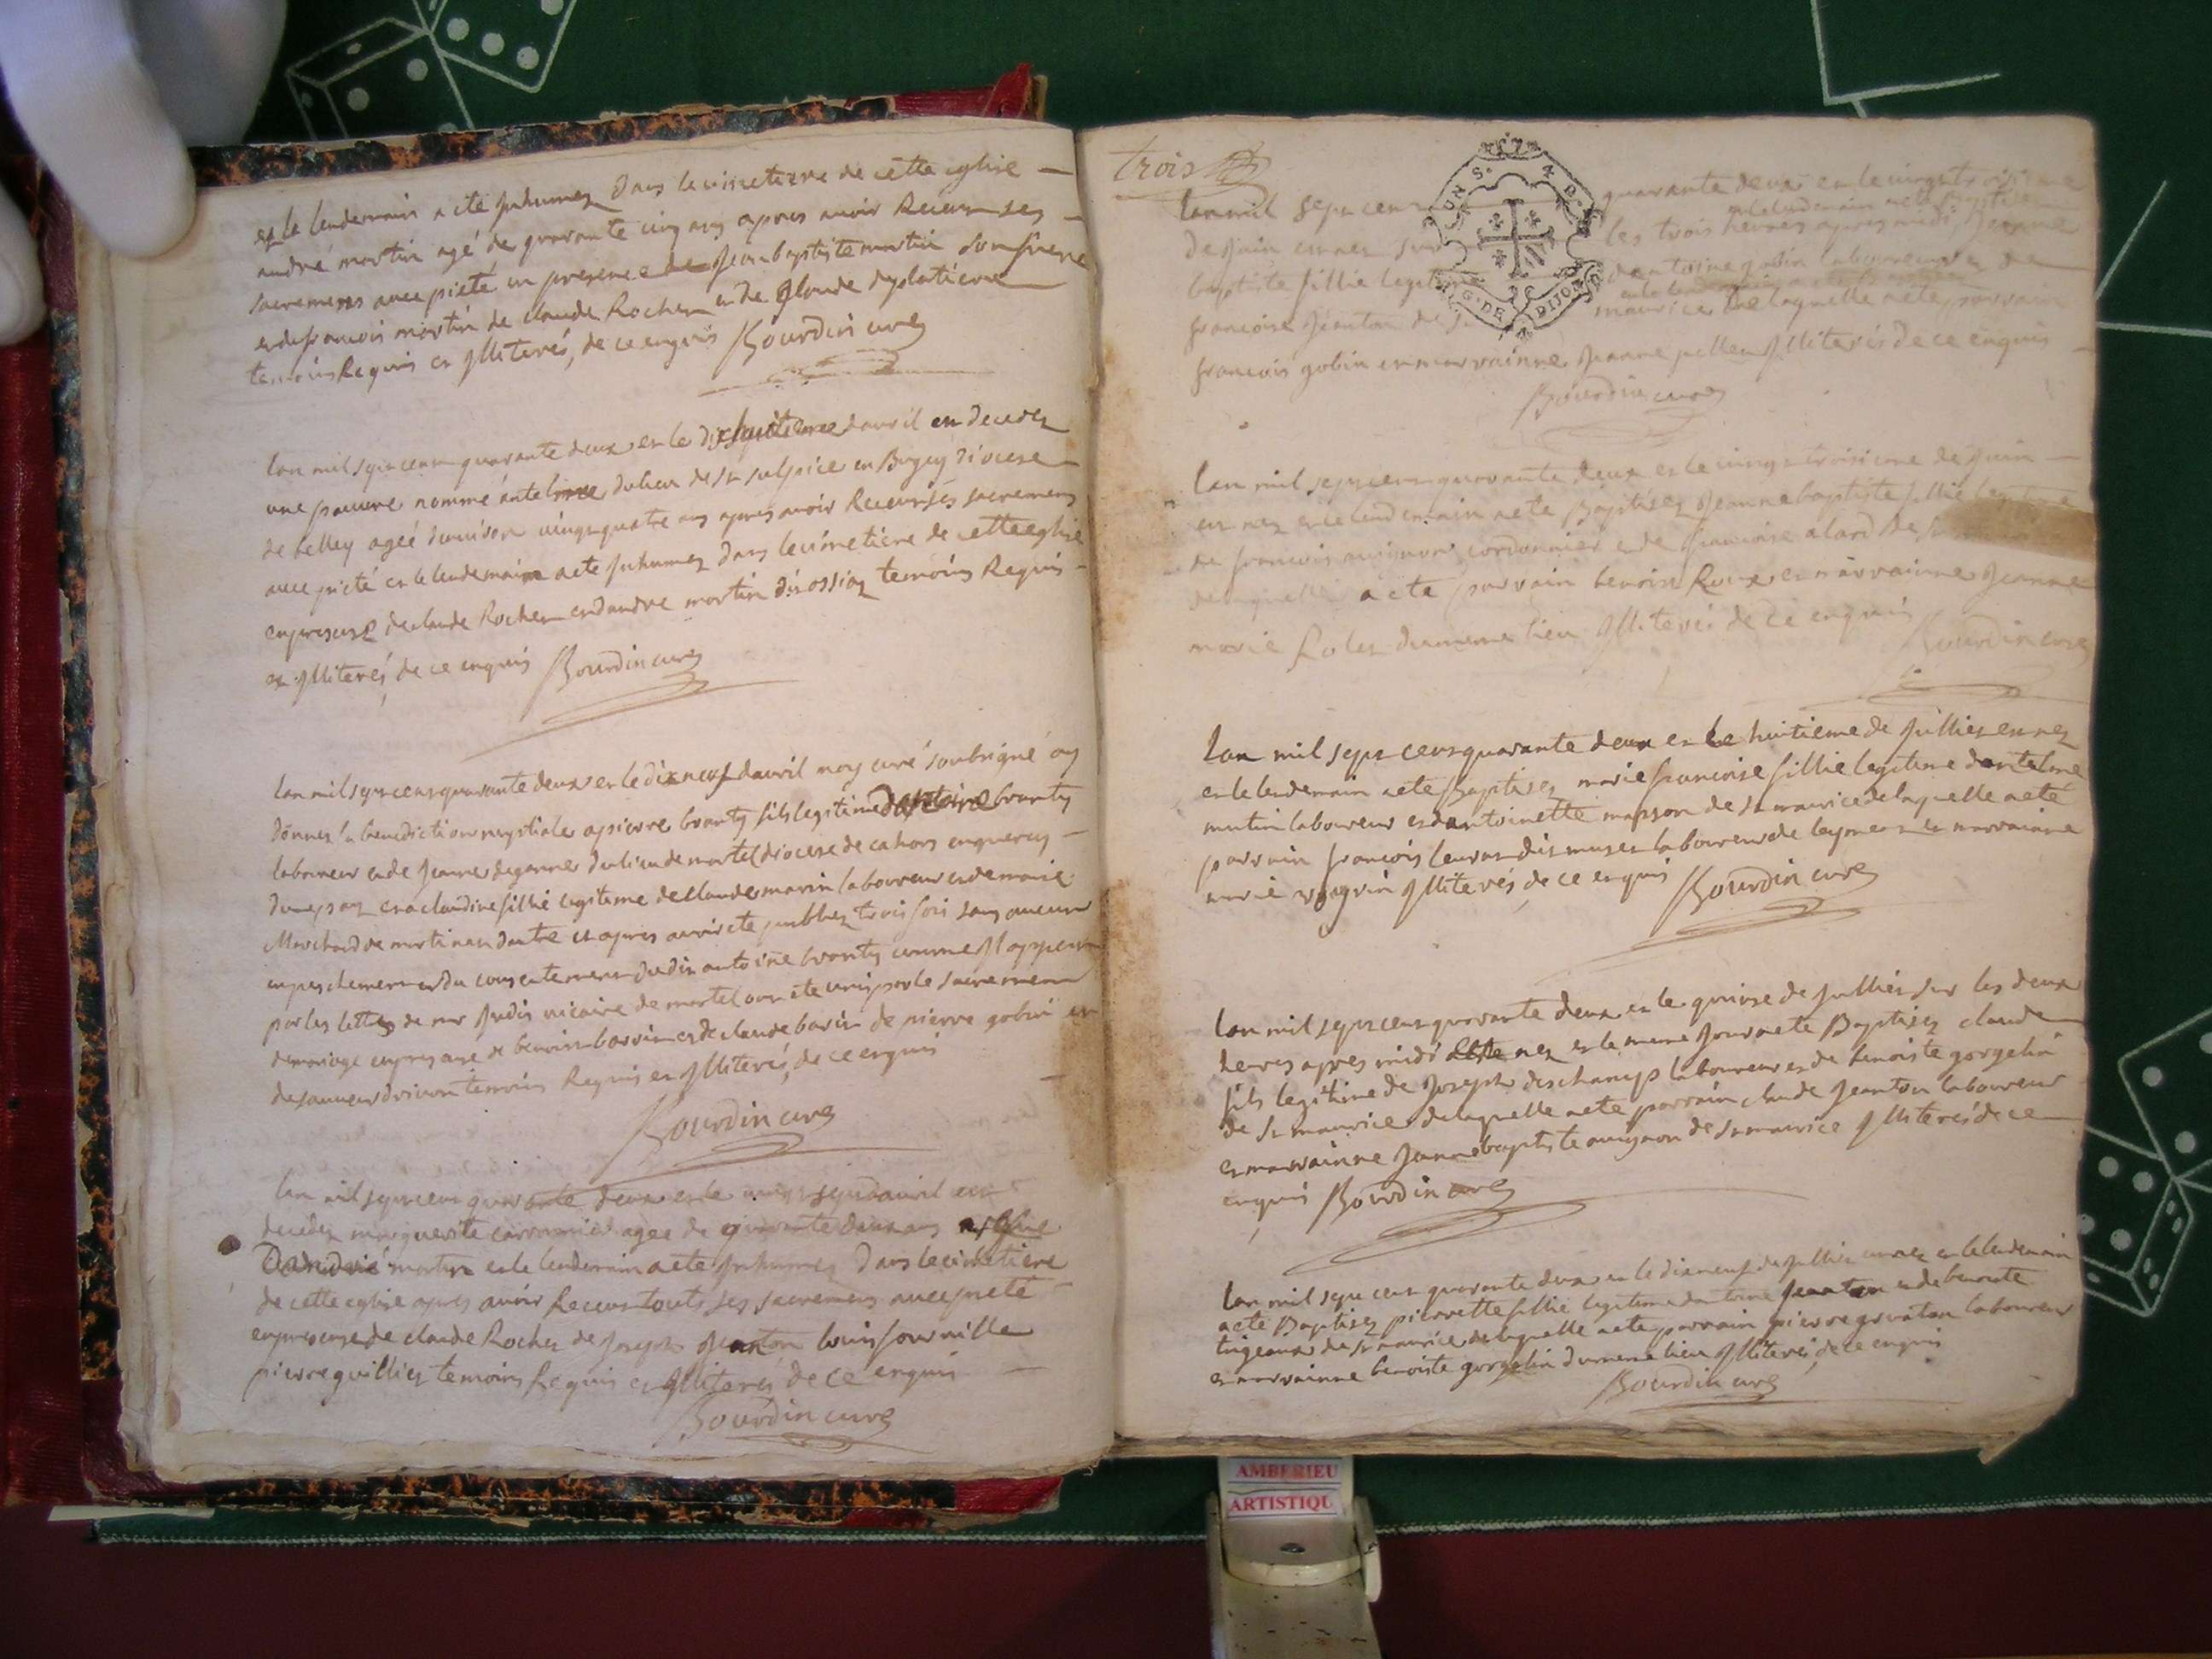 et le lendemain a été Inhumez dans le cimetiere de cette eglise
andré martin agé de quarante cinq ans apres avoir Receu ses
sacremens avec pieté en presence de Jean baptiste martin son frere
et de francois martin de claude Rocher et de Claude
temoins Requis et Illiterés, de ce enquis Bourdin curé
lan mil sept cent quarante deux et le dix huitieme davril est decedez
une pauvre nommé antelme du lieu de st sulpice en Bugey diocese
de belley ageé denviron vingt quatre ans apres avoir Receu ses sacremens
avec pieté et le lendemain a ete Inhumez dans le cimetiere de cette eglise
en presence de claude Rocher et dandre martin temoins Requis
et Illiterés, de ce enquis Bourdin curé
lan mil sept cent quarante deux et le dix neuf davril moy curé soubsigné ay
donnez la benediction nuptiale a pierre branty fils legitime dantoine branty
laboureur et de Jeanne deganne du lieu de martel diocese de cahors en quercy
dune part et a claudine fillie legitime de claude marin laboureur et de marie
Marchand de martinas dautre et apres avoir ete publiez trois fois sans aucun
empeschement et du consentement dudit antoine branty comme Il appert
par les lettres de mr Judis vicaire de martel ont ete unis par le sacrement
de mariage en presence de benoist et de claude de pierre gobin et
de temoins Requis et Illiterés, de ce enquis
Bourdin curé
lan mil sept cent quarante deux et le vingt sept davril est
decedez marguerite agee de quarante deux ans
dandré martin et le lendemain a ete Inhumez dans le cimetiere
de cette eglise apres avoir Receu touts ses sacremens avec pieté
en presence de claude Rocher de Joseph Jeanton louis fournille
pierre guillier temoins Requis et Illiterés de ce enquis
Bourdin curé
trois
G. DE DIJON
UN S. 4 D.
lan mil sept cent quarante deux et le vingt troisieme
de Juin est nez sur les trois heures apres midi Jeanne
et le lendemain a ete baptisé
baptiste fillie legitime dantoine gobin laboureur et de
francoise Jeanton de st maurice de laquelle a ete parrain
francois gobin et marrainne Jeanne pellet Illiterés de ce enquis
Bourdin curé
lan mil sept cent quarante deux et le vingt troisieme de Juin
est nez et le lendemain a ete Baptisez Jeanne baptiste fillie legitime
de francois avignon cordonnier et de francoise alard de st
de laquelle a ete parrain benoist Roux et marrainne Jeanne
marie Rolet du meme lieu Illiterés de ce enquis
Bourdin curé
lan mil sept cent quarante deux et le huitieme de Jullier est nez
et le lendemain a ete Baptisez marie francoise fillie legitime dantelme
martin laboureur et dantoinette masson de st maurice de laquelle a eté
parrain francois dit muset laboureur de leyment et marrainne
marie Illiterés, de ce enquis Bourdin curé
lan mil sept cent quarante deux et le quinze de Jullier sur les deux
heures apres midi est nez et le meme Jour a ete Baptisez claude
fils legitime de Joseph deschamps laboureur et de benoiste gorgelin
de st maurice de laquelle a ete parrain claude Jeanton laboureur
et marrainne Jeanne baptiste avignon de st maurice Illiterés de ce
enquis Bourdin curé
lan mil sept cent quarante deux et le dix neuf de Jullier est nez et le lendemain
a eté Baptisez pierrette fillie legitime dantoine Jeanton et de benoite
de st maurice de laquelle a ete parrain pierre laboureur
et marrainne benoiste gorgelin du meme lieu Illiterés, de ce enquis
Bourdin curé
AMBERIEU
ARTISTIQU